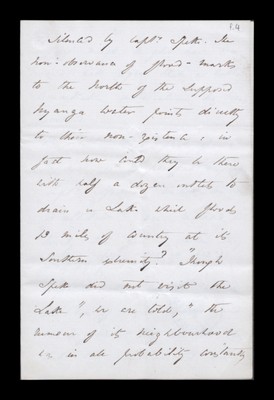 14
silenced by Capt. Speke. The
non-observance of flood-marks
to the North of the supposed
Nyanza water points directly
to their non-existence, in
fact how could they be there
with half a dozen outlets to
drain a Lake which floods
13 miles of country at its
Southern extremity? "Though
Speke did not visit the
Lake", we are told, "the
rumour of its neighbourhood
in all probability constantly